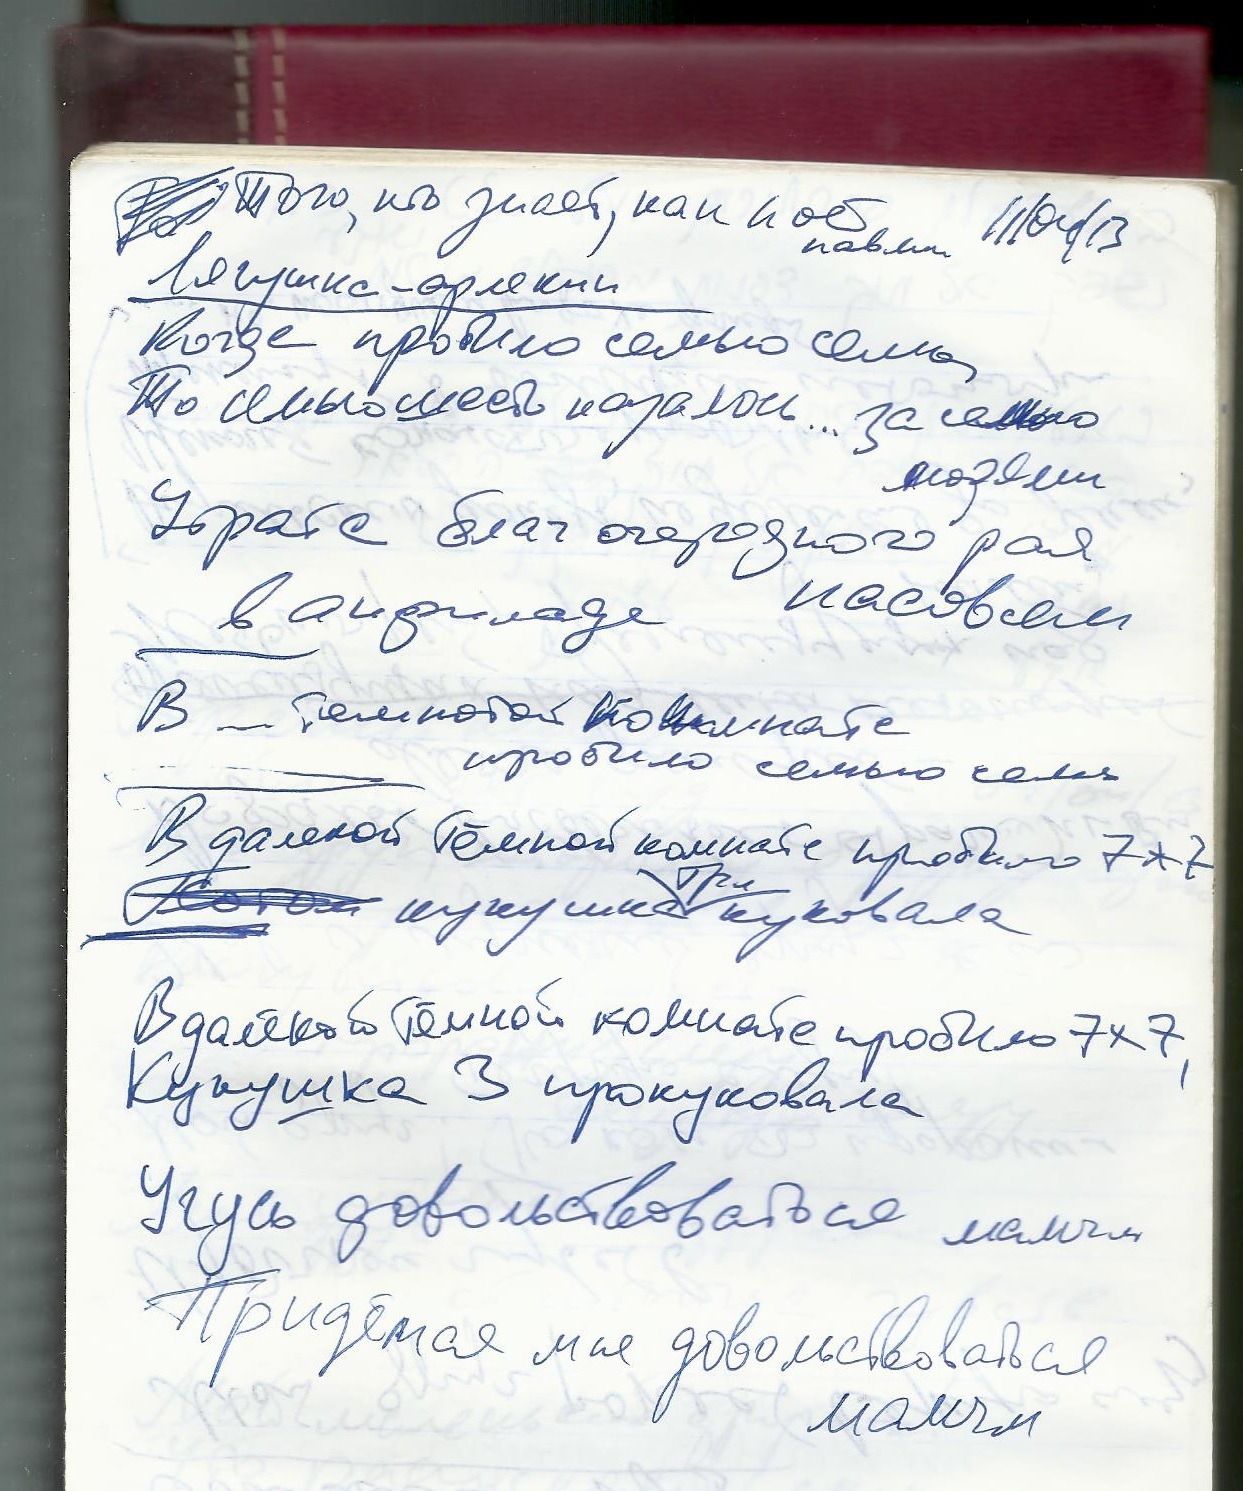 Того, кто знает, как поёт
Лягушка-арлекин
Когда пробило семью семь,
То семью шесть казалось... за семью
Утрате благ очередного рая
в анфиладе насовсем
В темнотой комнате
пробило семью семь
В далекой тёмной комнате пробило 7х7
кукушка три куковала
В далёкой тёмной комнате пробило 7х7,
Кукушка 3 прокуковала
довольствоваться
Придётся мне довольствоваться